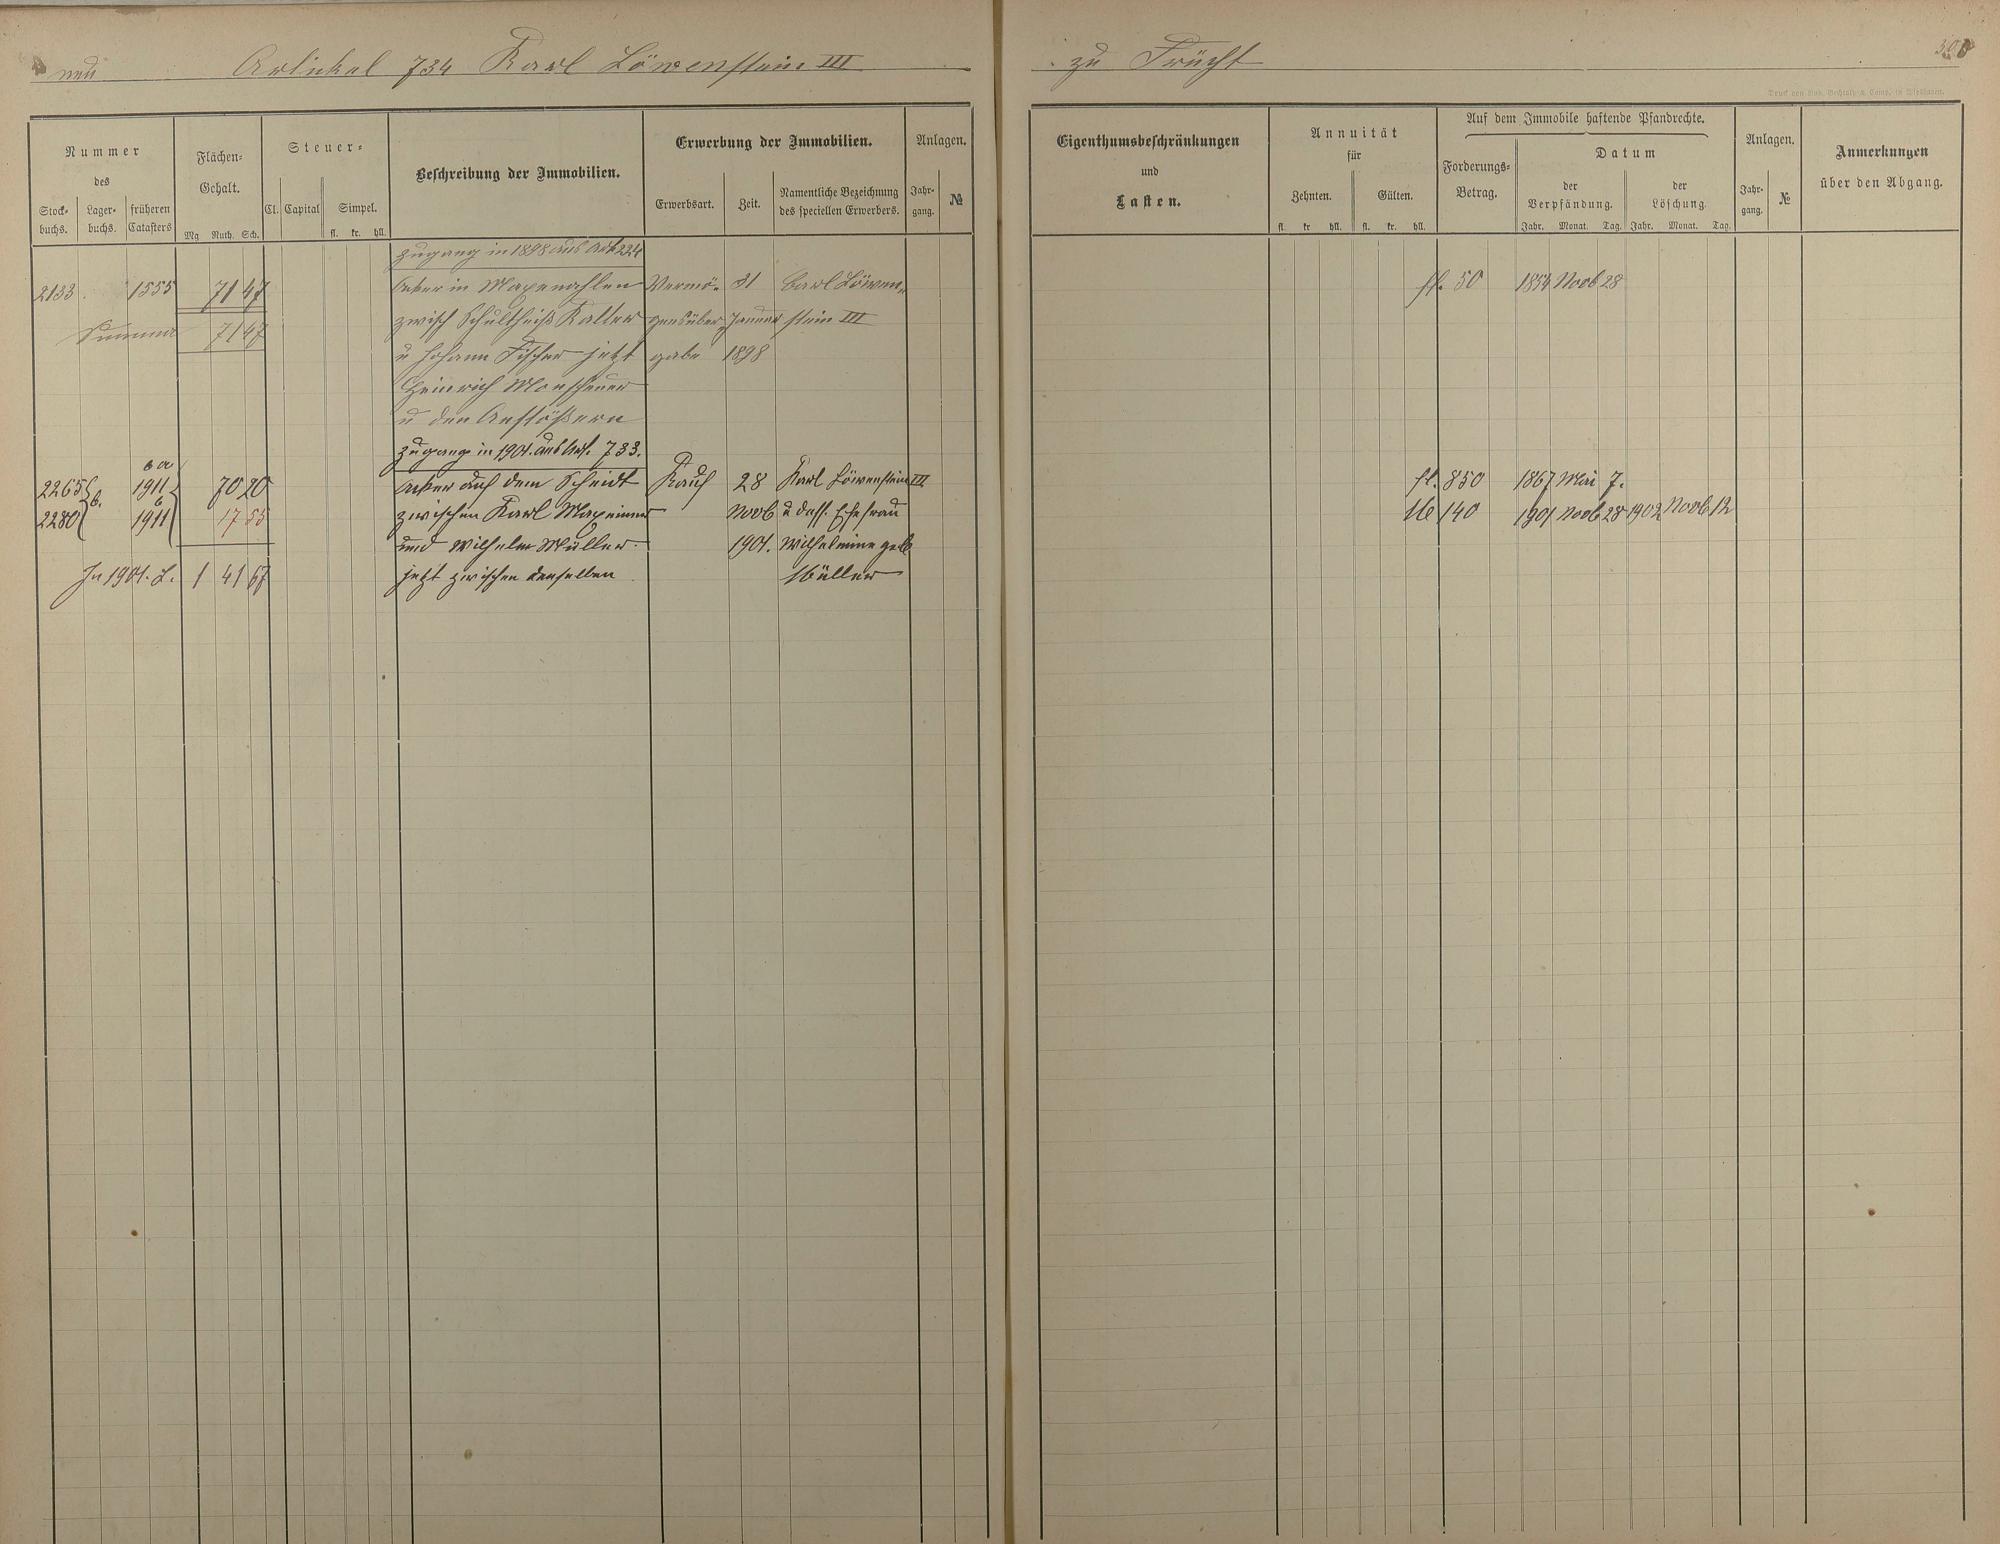 neu Artickel 734 Karl Löwenstein III
zu Frücht
Druck von Rud. Bechtold & Comp. in Wiesbaden.
Nummer
des
Stock-
buchs.
Lager-
buchs.
früheren
Catasters
Flächen-
Gehalt.
Mg Ruth. Sch.
Steuer-
Cl. Capital Simpel.
fl. kr. hll.
Beschreibung der Immobilien.
Erwerbung der Immobilien.
Erwerbsart. Zeit.
Namentliche Bezeichnung
des speciellen Erwerbers.
Anlagen.
Jahr-
gang.
№
Eigenthumsbeschränkungen
und
Lasten.
Annuität
für
Zehnten. Gülten.
fl. kr hll. fl. kr. hll.
Auf dem Immobile haftende Pfandrechte.
Forderungs-
Betrag.
Datum
der
Verpfändung.
der
Löschung.
Jahr. Monat. Tag. Jahr. Monat. Tag.
Anlagen.
Jahr-
gang.
№
Anmerkungen
über den Abgang.
Zugang in 1898 aus Art 224
2133 1555 71 47 Acker in Maxenahlen Vermö- 31 Carl Löwen- fl. 50 1854 Novb 28
Summa 71 47 zwisch Schultheiß Kalter gensüber- Januar stein III
u Johann Fischer jetzt gabe 1898
Heinrich Monscheuer
u den Anstößern
Zugang in 1901. aus Art. 733.
2265 6. 1911 a 70 20 Acker auf dem Scheidt Kauf 28 Karl Löwenstein III fl. 850 1867 Mai 7.
2280 1911 b 17 55 zwischen Karl Maxeiner Novb u dess. Ehefrau M 140 1901 Novb 28 1902 Novb 12
und Wilhelm Müller. 1901. Wilhelmine geb
In 1901. L. 1 41 67 jetzt zwischen denselben Müller